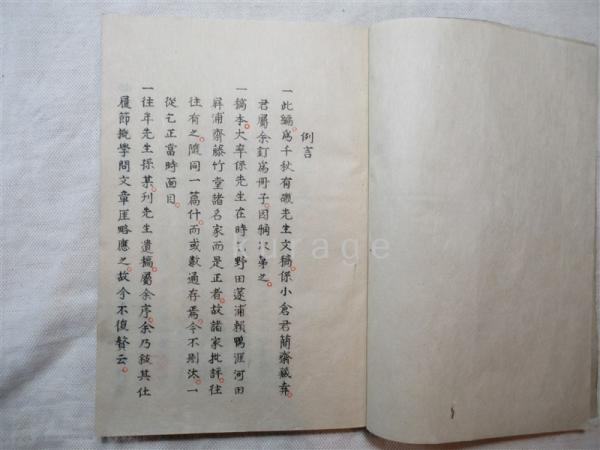 例言
一此編爲千秋有磯先生文稿係小倉君蘭齋藏弆
君屬余釘爲冊子因稍次第之
一稿本大率係先生在時就野田蓬浦賴鴨涯河田
屏浦齋藤竹堂諸名家而是正者故諸家批評往
往有之隨同一篇什而或數通存焉今不刪汰一
從乞正當時面目
一往年先生孫某刊先生遺稿屬余序余乃敍其仕
履節概學問文章厓略應之故今不復贅云
kurage